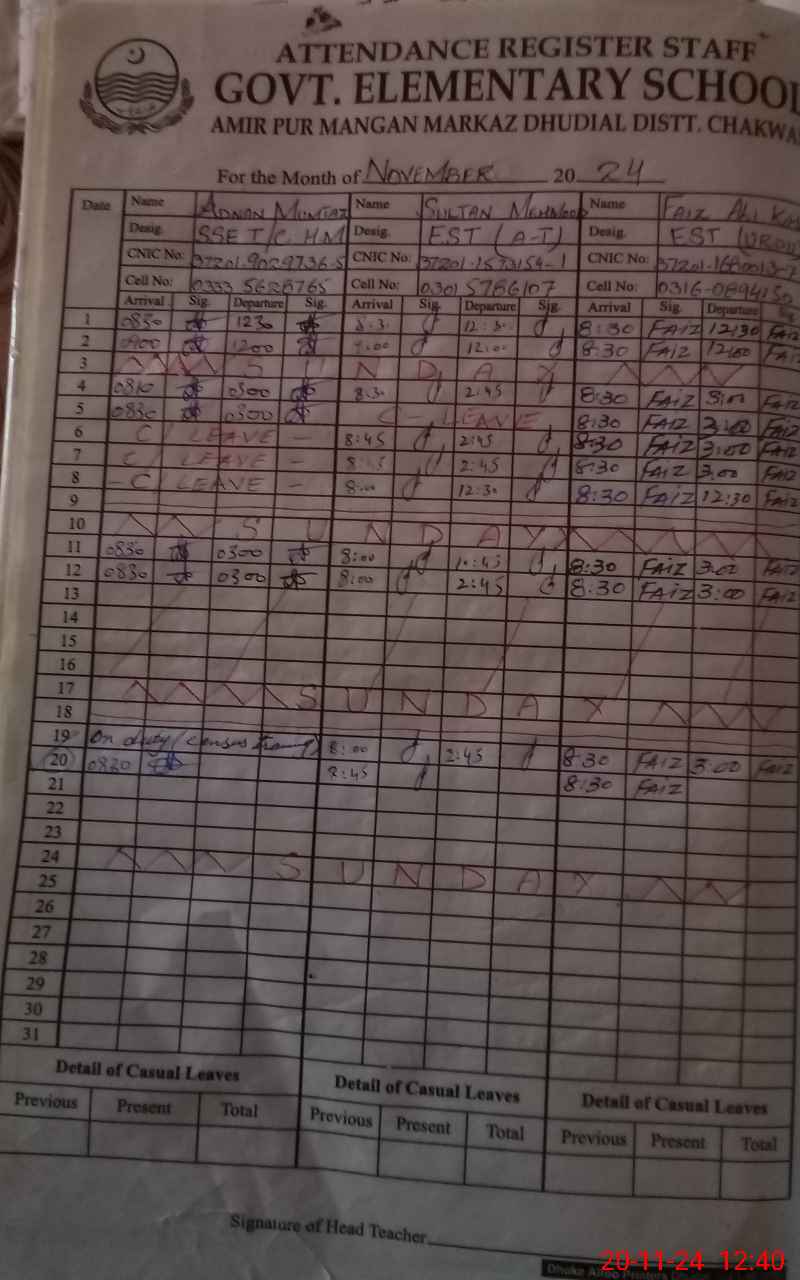 ATTENDANCE REGISTER STAFF
GOVT. ELEMENTARY SCHOOL
AMIR PUR MANGAN MARKAZ DHUDIAL DISTT. CHAKWA
For the Month of NOVEMBER 20 24
Date Name ADNAN MUMTAZ Name SULTAN MEHMOOD Name FAIZ ALI
Desig. SSE T/C HM Desig. EST (A-T) Desig. EST
CNIC No: CNIC No: CNIC No:
Cell No: 0333 5628765 Cell No: 0301 5786107 Cell No:
Arrival Sig. Departure Sig. Arrival Sig. Departure Sig. Arrival Sig. Departure
1 0830 1230 8:30 12:30 8:30 FAIZ 12:30 FAIZ
2 0900 1200 12:00 8:30 FAIZ 12:00 FAIZ
3 SUNDAY
4 0830 0300 8:30 2:45 8:30 FAIZ 3:00 FAIZ
5 0830 0300 C-LEAVE 8:30 FAIZ 3:00 FAIZ
6 C/ LEAVE - 8:45 2:45 8:30 FAIZ 3:00 FAIZ
7 C/ LEAVE - 2:45 8:30 FAIZ 3:00 FAIZ
8 - C/ LEAVE - 8:00 12:30 8:30 FAIZ 12:30 FAIZ
9
10 SUNDAY
11 0830 0300 8:00 8:30 FAIZ 3:00 FAIZ
12 0830 0300 8:00 2:45 8:30 FAIZ 3:00 FAIZ
13
14
15
16
17 SUNDAY
18
19 On duty (census training) 8:00 2:45 8:30 FAIZ 3:00 FAIZ
20 0830 8:45 8:30 FAIZ
21
22
23
24 SUNDAY
25
26
27
28
29
30
31
Detail of Casual Leaves Detail of Casual Leaves Detail of Casual Leaves
Previous Present Total Previous Present Total Previous Present Total
Signature of Head Teacher
20-11-24 12:40